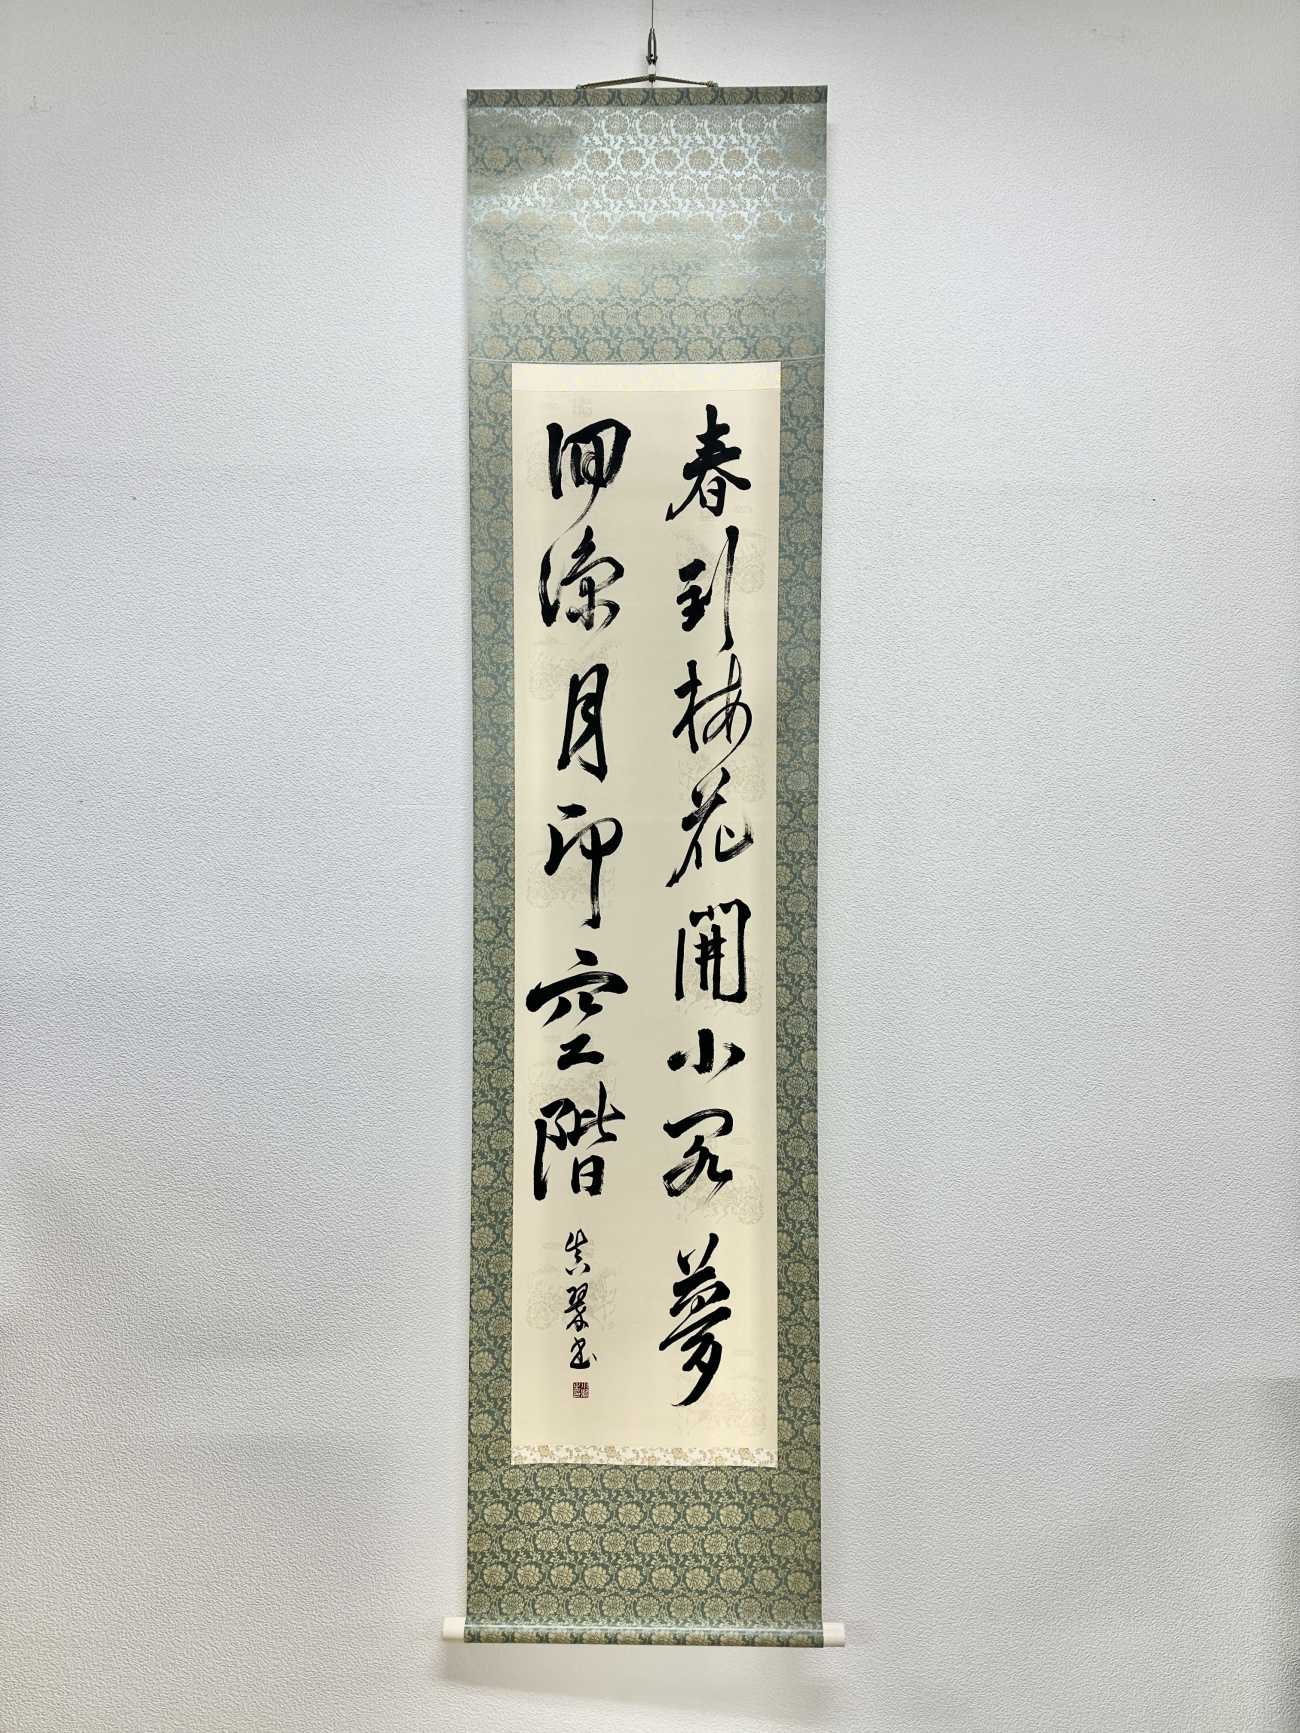 春到梅花開小閣夢
回涼月印空階
真翠書